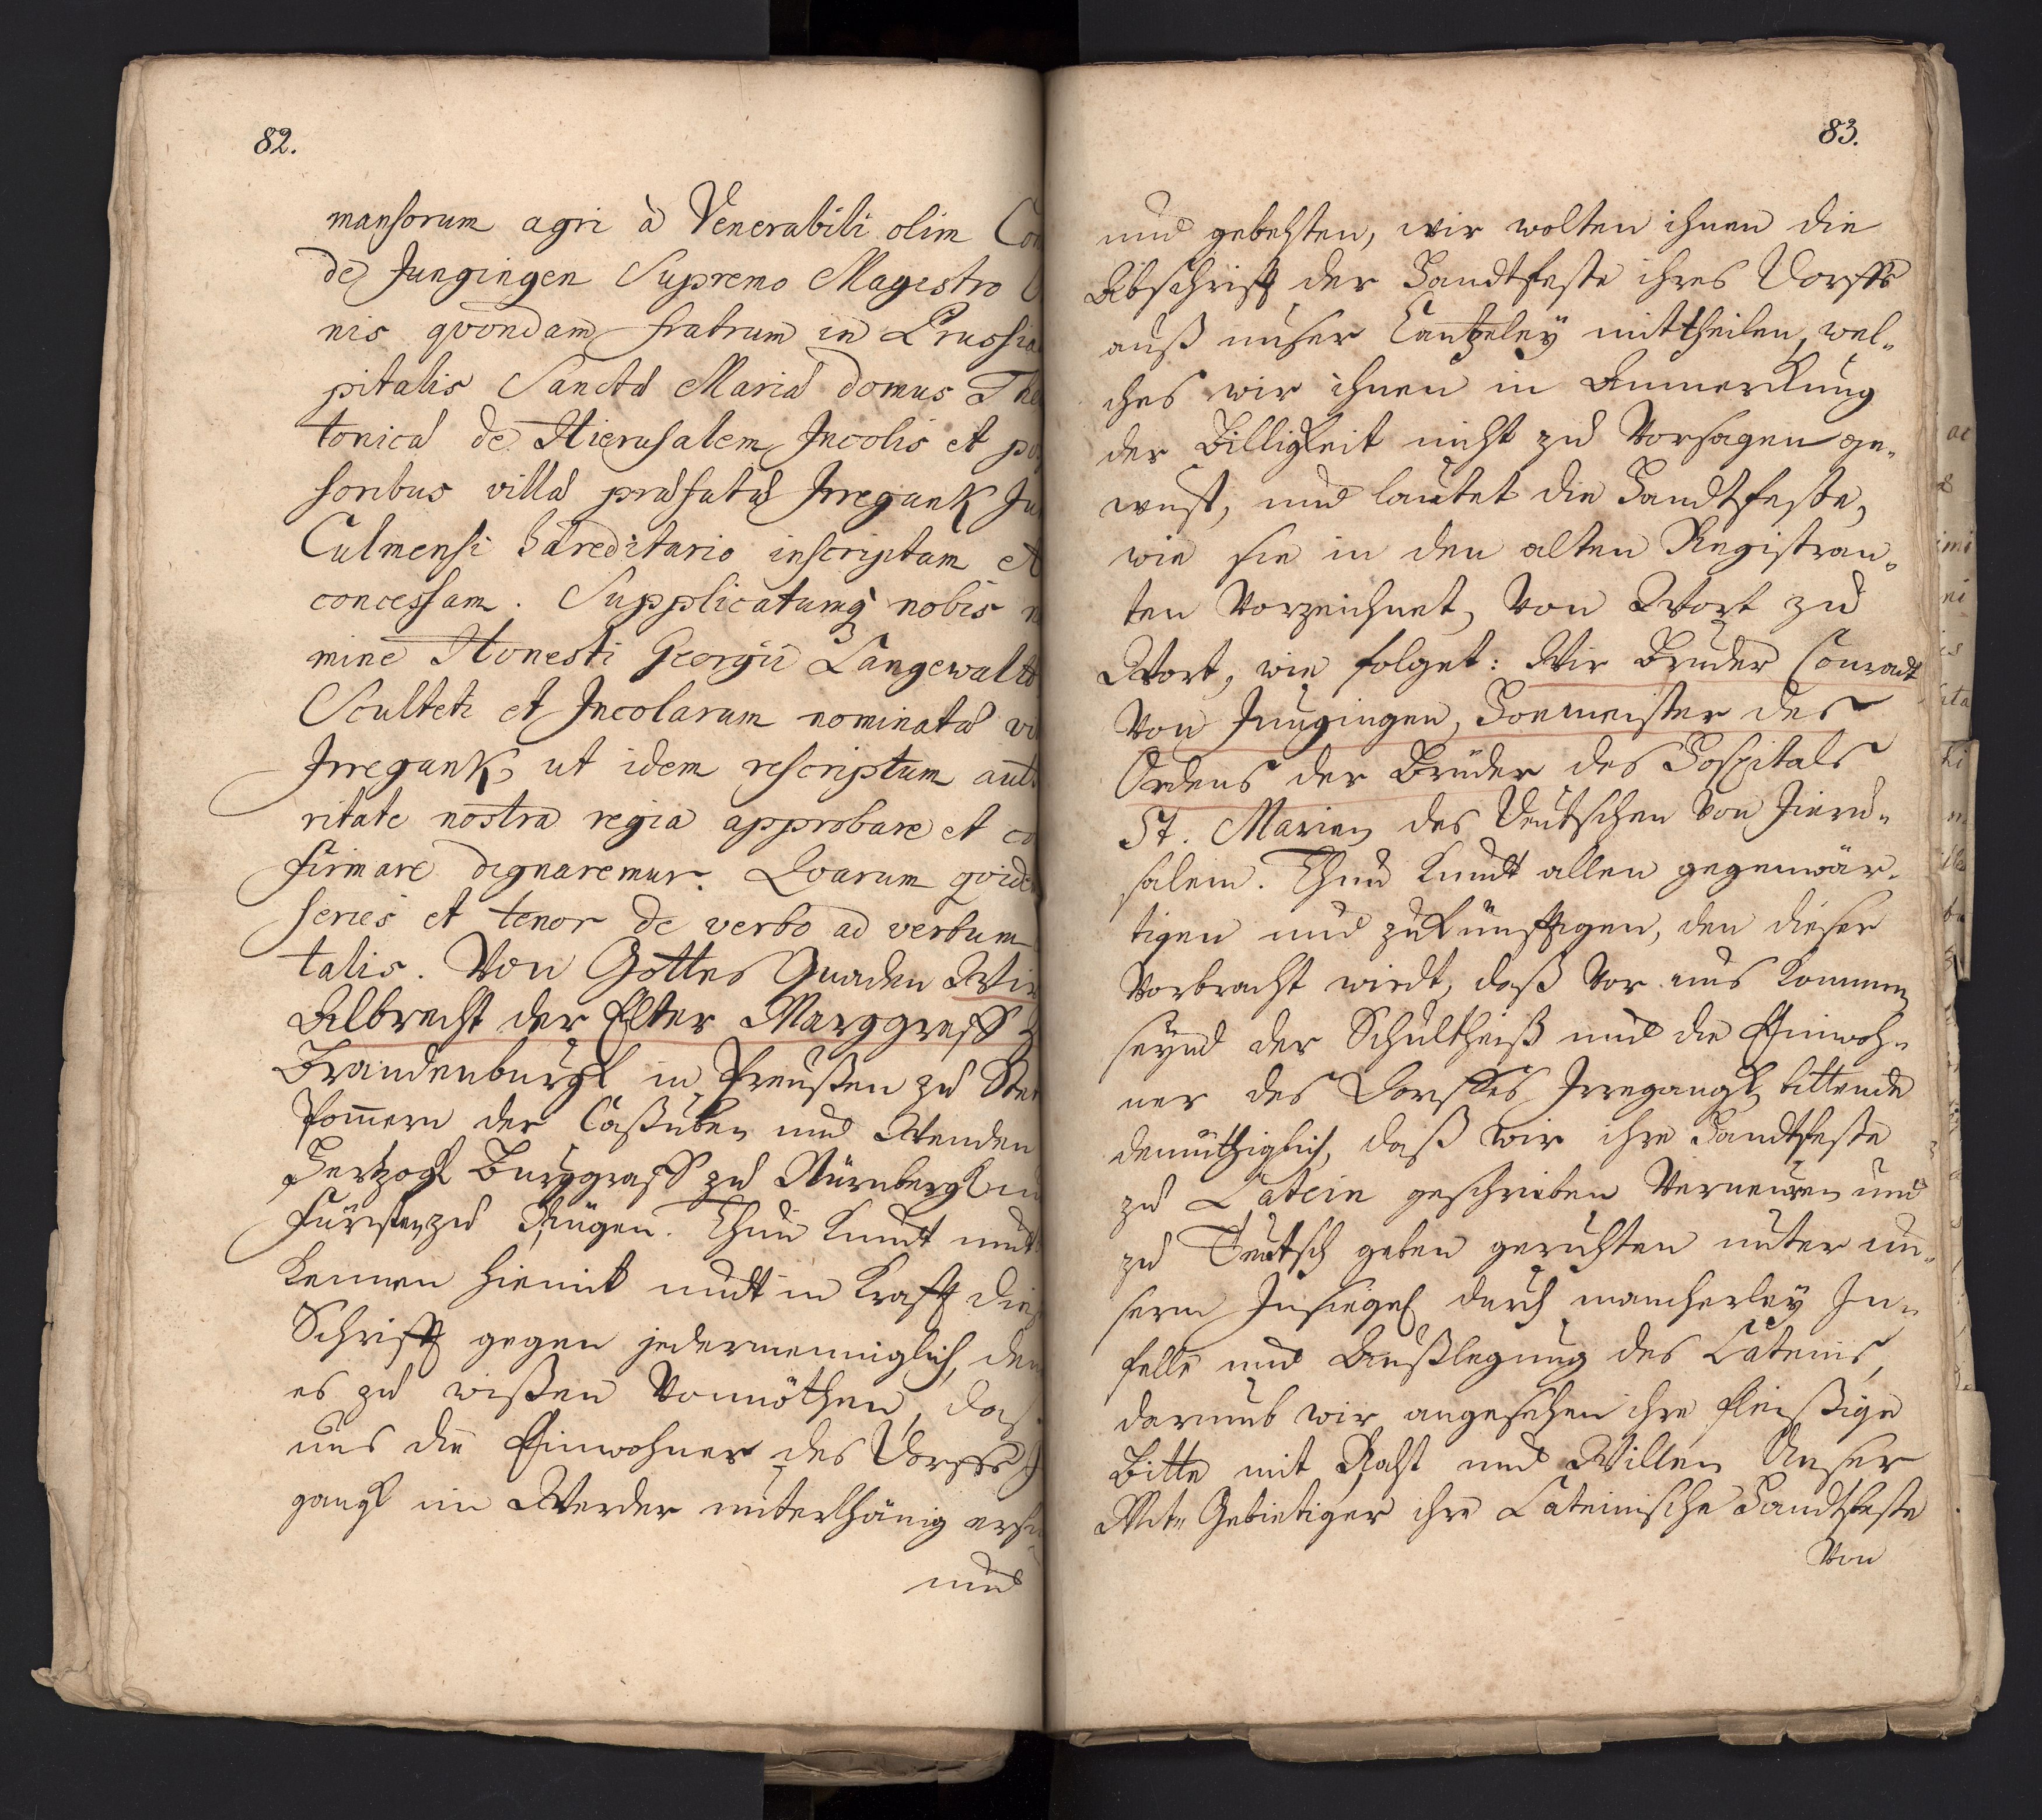 82.
mansorum agri à Venerabili olim Con
de Jungingen Supremo Magistro O
nis qvondam fratrum in Prussia
pitalis Sanctæ Mariæ domus Theu
tonicæ de Hierusalem, Incolis et pos
soribus villæ præfatæ Irregank Ju
Culmensi hæreditario inscriptam et
concessam. Supplicatumq nobis n
mine Honesti Georgii Langewaldt
Sculteti et Incolarum nominatæ vil
Irregank, ut idem rescriptum auto
ritate nostra regia approbare et co
firmare dignaremur. Qvarum qvide
series et tenor de verbo ad verbum
talis. Von Gottes Gnaden Wir
Albrecht der Elter Marggraff z
Brandenburgk in Preußen zu Stet
Pom̄ern der Caßuben und Wenden
Hertzogk Burggraff zu Nürnbergk un
Fürst zu Rügen. Thun kundt undt
kennen hiemit undt in Krafft dies
Schrifft gegen jedermenniglich, den
es zu wißen vonnöthen, daß
uns die Einwohner des Dorffs I
gangk im Werder unterthänig ersu
und
83.
und gebehten, wir wolten ihnen die
Abschrifft der Handtfeste ihres Dorffs
auß unser Cantzeley mittheilen, wel-
ches wir ihnen in Anmerckung
der Billigkeit nicht zu versagen ge-
wust, und lautet die Handtfeste,
wie sie in den alten Registran-
ten verzeichnet, von Wort zu
Wort, wie folget: Wir Bruder Conradt
von Jungingen, Homeister des
Ordens der Brüder des Hospitals
St. Marien des Deutschen von Jieru-
salem. Thun kundt allen gegenwär-
tigen und zukünfftigen, den dieser
vorbracht wirdt, daß vor uns kommen
seynd der Schultheiß und die Einwoh-
ner des Dorffes Irregangk, bittende
demuthiglich, daß wir ihre Handtfeste
zu Latein geschrieben verneuren und
zu Teutsch geben geruchten unter un-
serm Insiegel durch mancherley In-
felle und Außlegung des Lateins,
darumb wir angesehen ihre fleißige
Bitte mit Raht und Willen Unser
Mit- Gebietiger ihre Lateinische Handtfeste
von